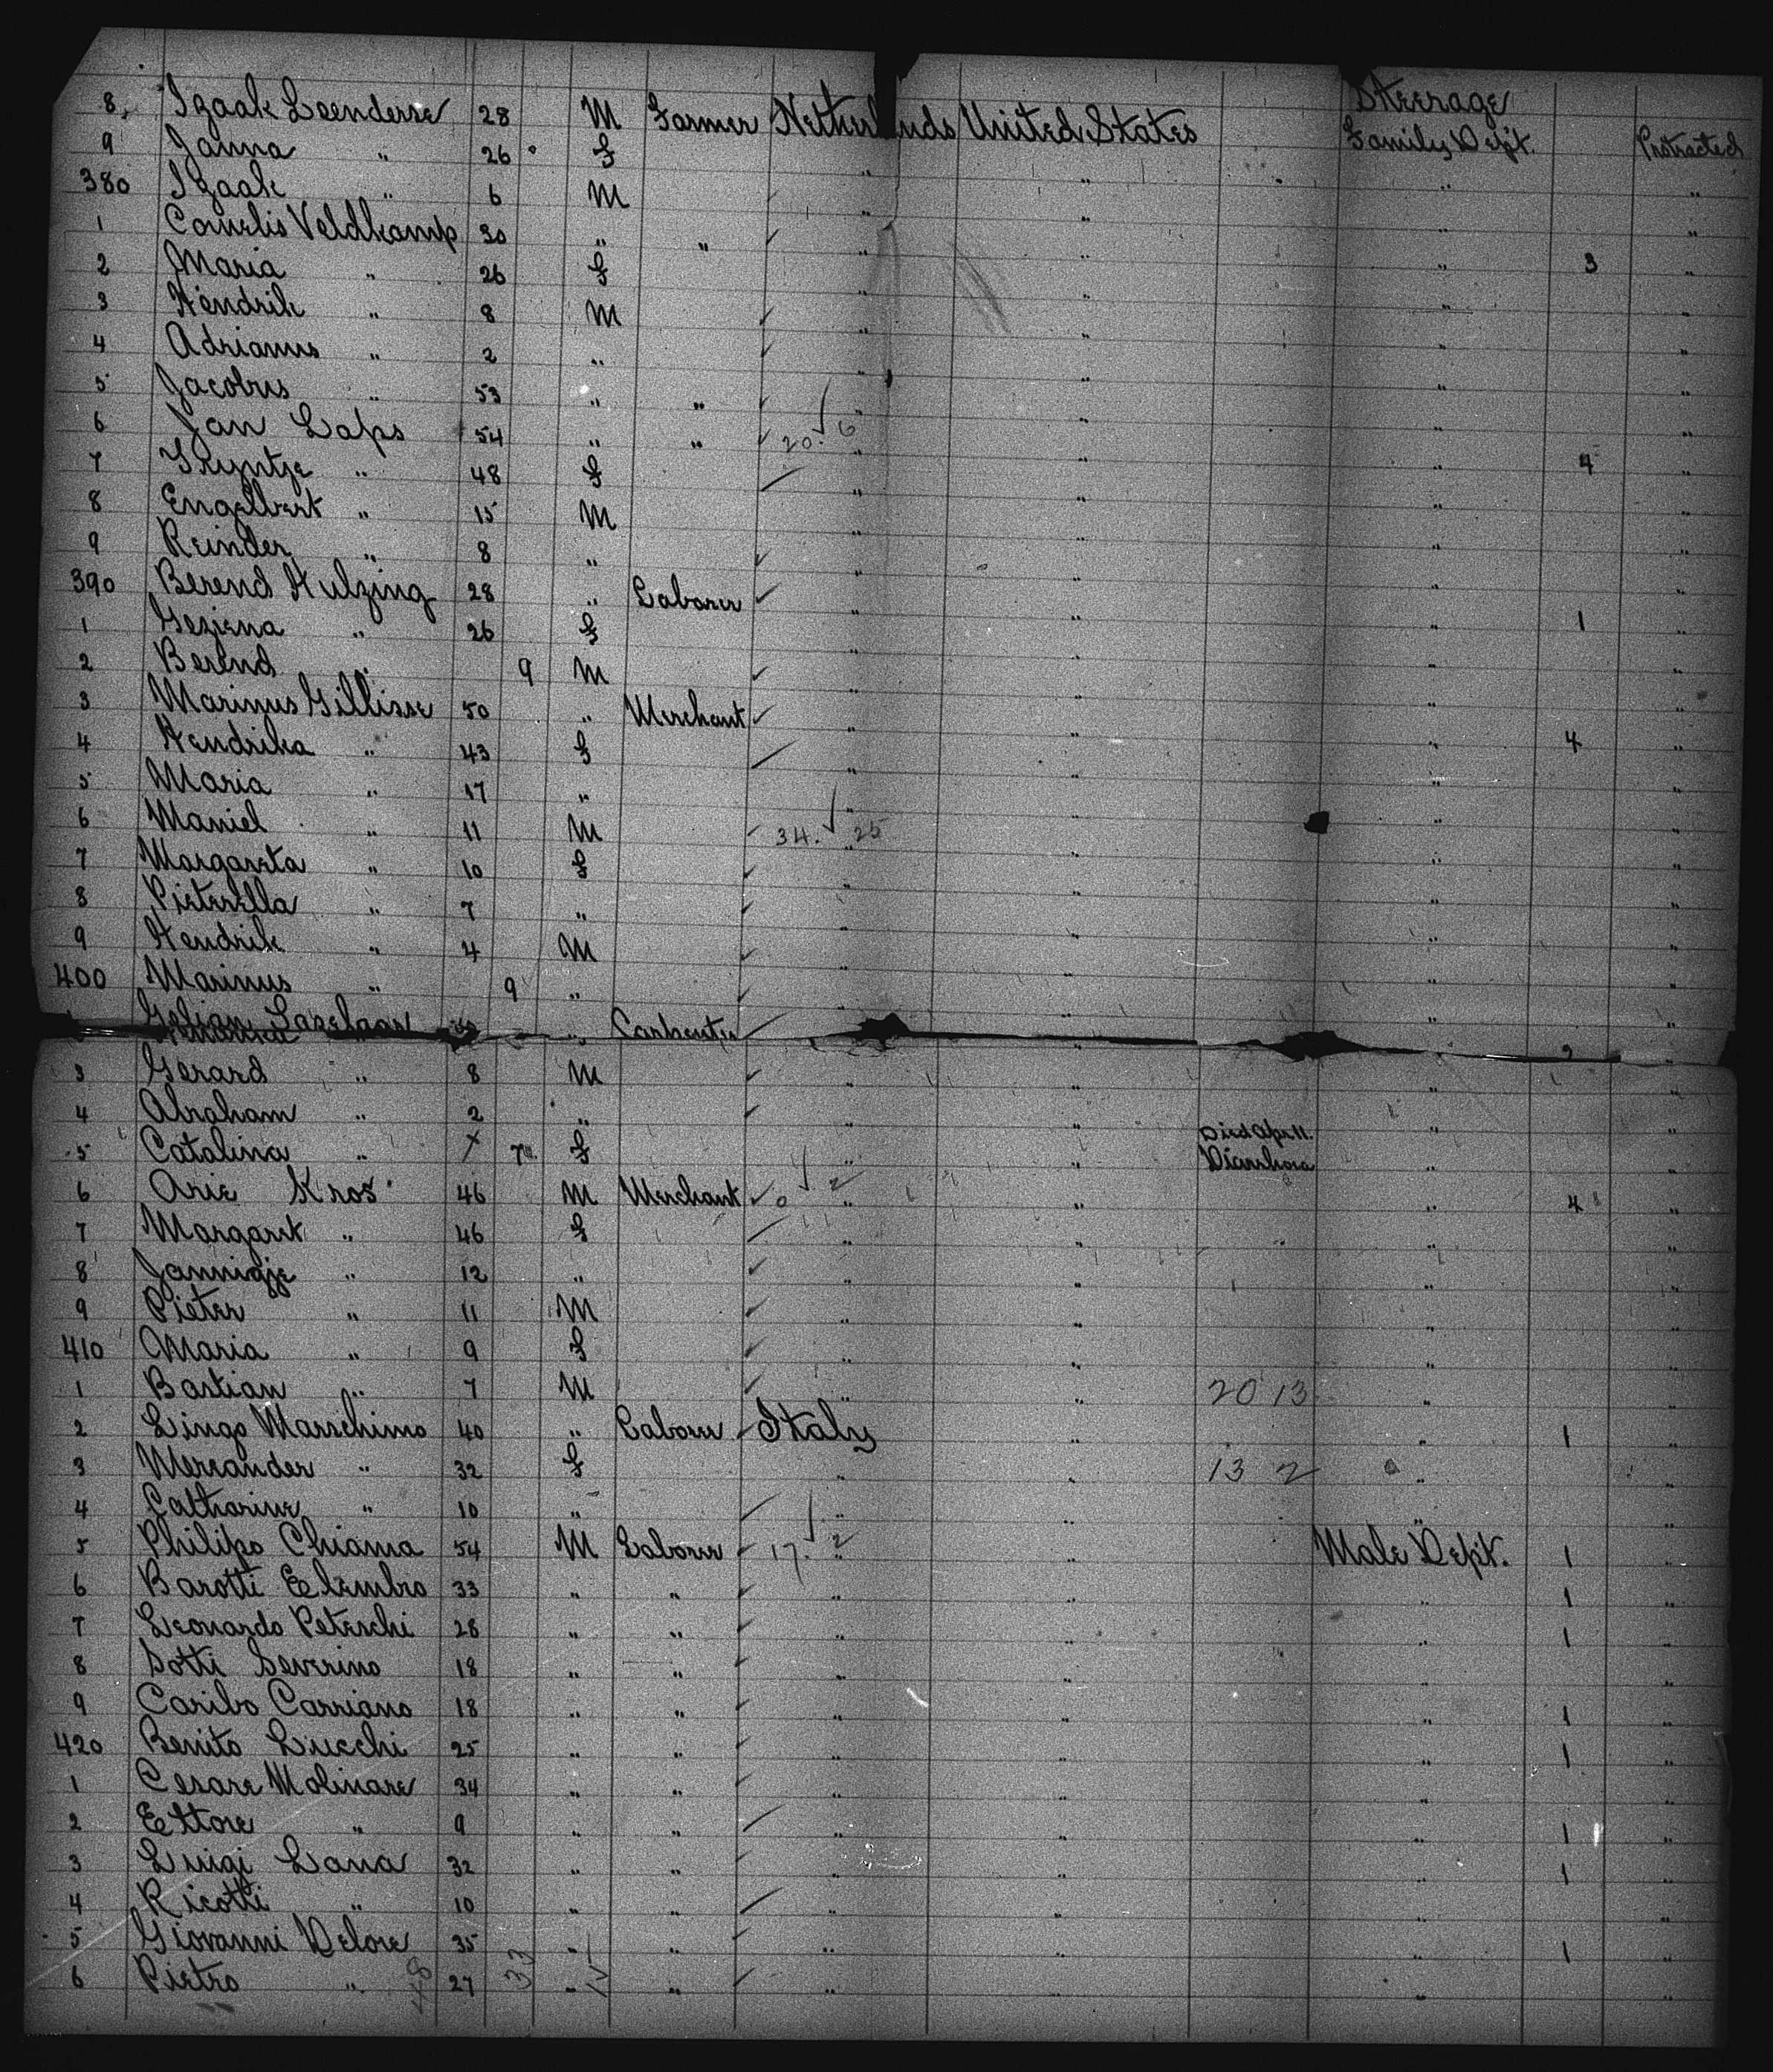 8 Izaak Leenderse 28 M Farmer Netherlands United States Steerage Family Dept. Protracted
9 Janna " 26 F " " " "
380 Izaak " 6 M " " " "
1 Cornelis Veldkamp 30 " " " " " 3 "
2 Maria " 26 F " " " "
3 Hendrik " 8 M " " " "
4 Adrianus " 2 " " " " "
5 Jacobus " 53 " " " " " "
6 Jan Laps 54 " " 20. 6 " " " 4 "
7 Tryntje " 48 F " " " "
8 Engelbert " 15 M " " " "
9 Reinder " 8 " " " " "
390 Berend Hulzing 28 " Laborer " " " 1 "
1 Geziena " 26 F " " " "
2 Berend " 9 M " " " "
3 Marinus Gillisse 50 " Merchant " " " 4 "
4 Hendrika " 43 F " " " "
5 Maria " 17 " " " " "
6 Maniel " 11 M 34. 25 " " " "
7 Margareta " 10 F " " " "
8 Pieterella " 7 " " " " "
9 Hendrik " 4 M " " " "
400 Marinus " 9 " " " " "
" Carpenter " " " "
3 Gerard " 8 M " " " "
4 Abraham " 2 " " " " "
5 Catalina " 7m F " " Died Apr 11. Diarrhoea " "
6 Arie Kros 46 M Merchant 0 2 " " " 4 "
7 Margaret " 46 F " " " "
8 Jannigje " 12 " " " " "
9 Pieter " 11 M " " " "
410 Maria " 9 F " " " "
1 Bastian " 7 M " " 20 13 " "
2 Lingo Marschino 40 " Laborer Italy " " 1 "
3 Mereander " 32 F " " 13 2 " "
4 Catharine " 10 " " " " "
5 Philipo Chiama 54 M Laborer 17. 2 " " Male Dept. 1 "
6 Barotti Elembro 33 " " " " " 1 "
7 Leonardo Peterschi 28 " " " " " 1 "
8 Sotti Severino 18 " " " " " "
9 Caribo Carriano 18 " " " " " 1 "
420 Benito Lucchi 25 " " " " " 1 "
1 Cesare Molinare 34 " " " " " "
2 Ettore " 9 " " " " " 1 "
3 Luigi Lana 32 " " " " " 1 "
4 Ricotti " 10 " " " " " "
5 Giovanni Delore 35 " " " " " 1 "
6 Pietro " 27 " " " " " "
48 33 15